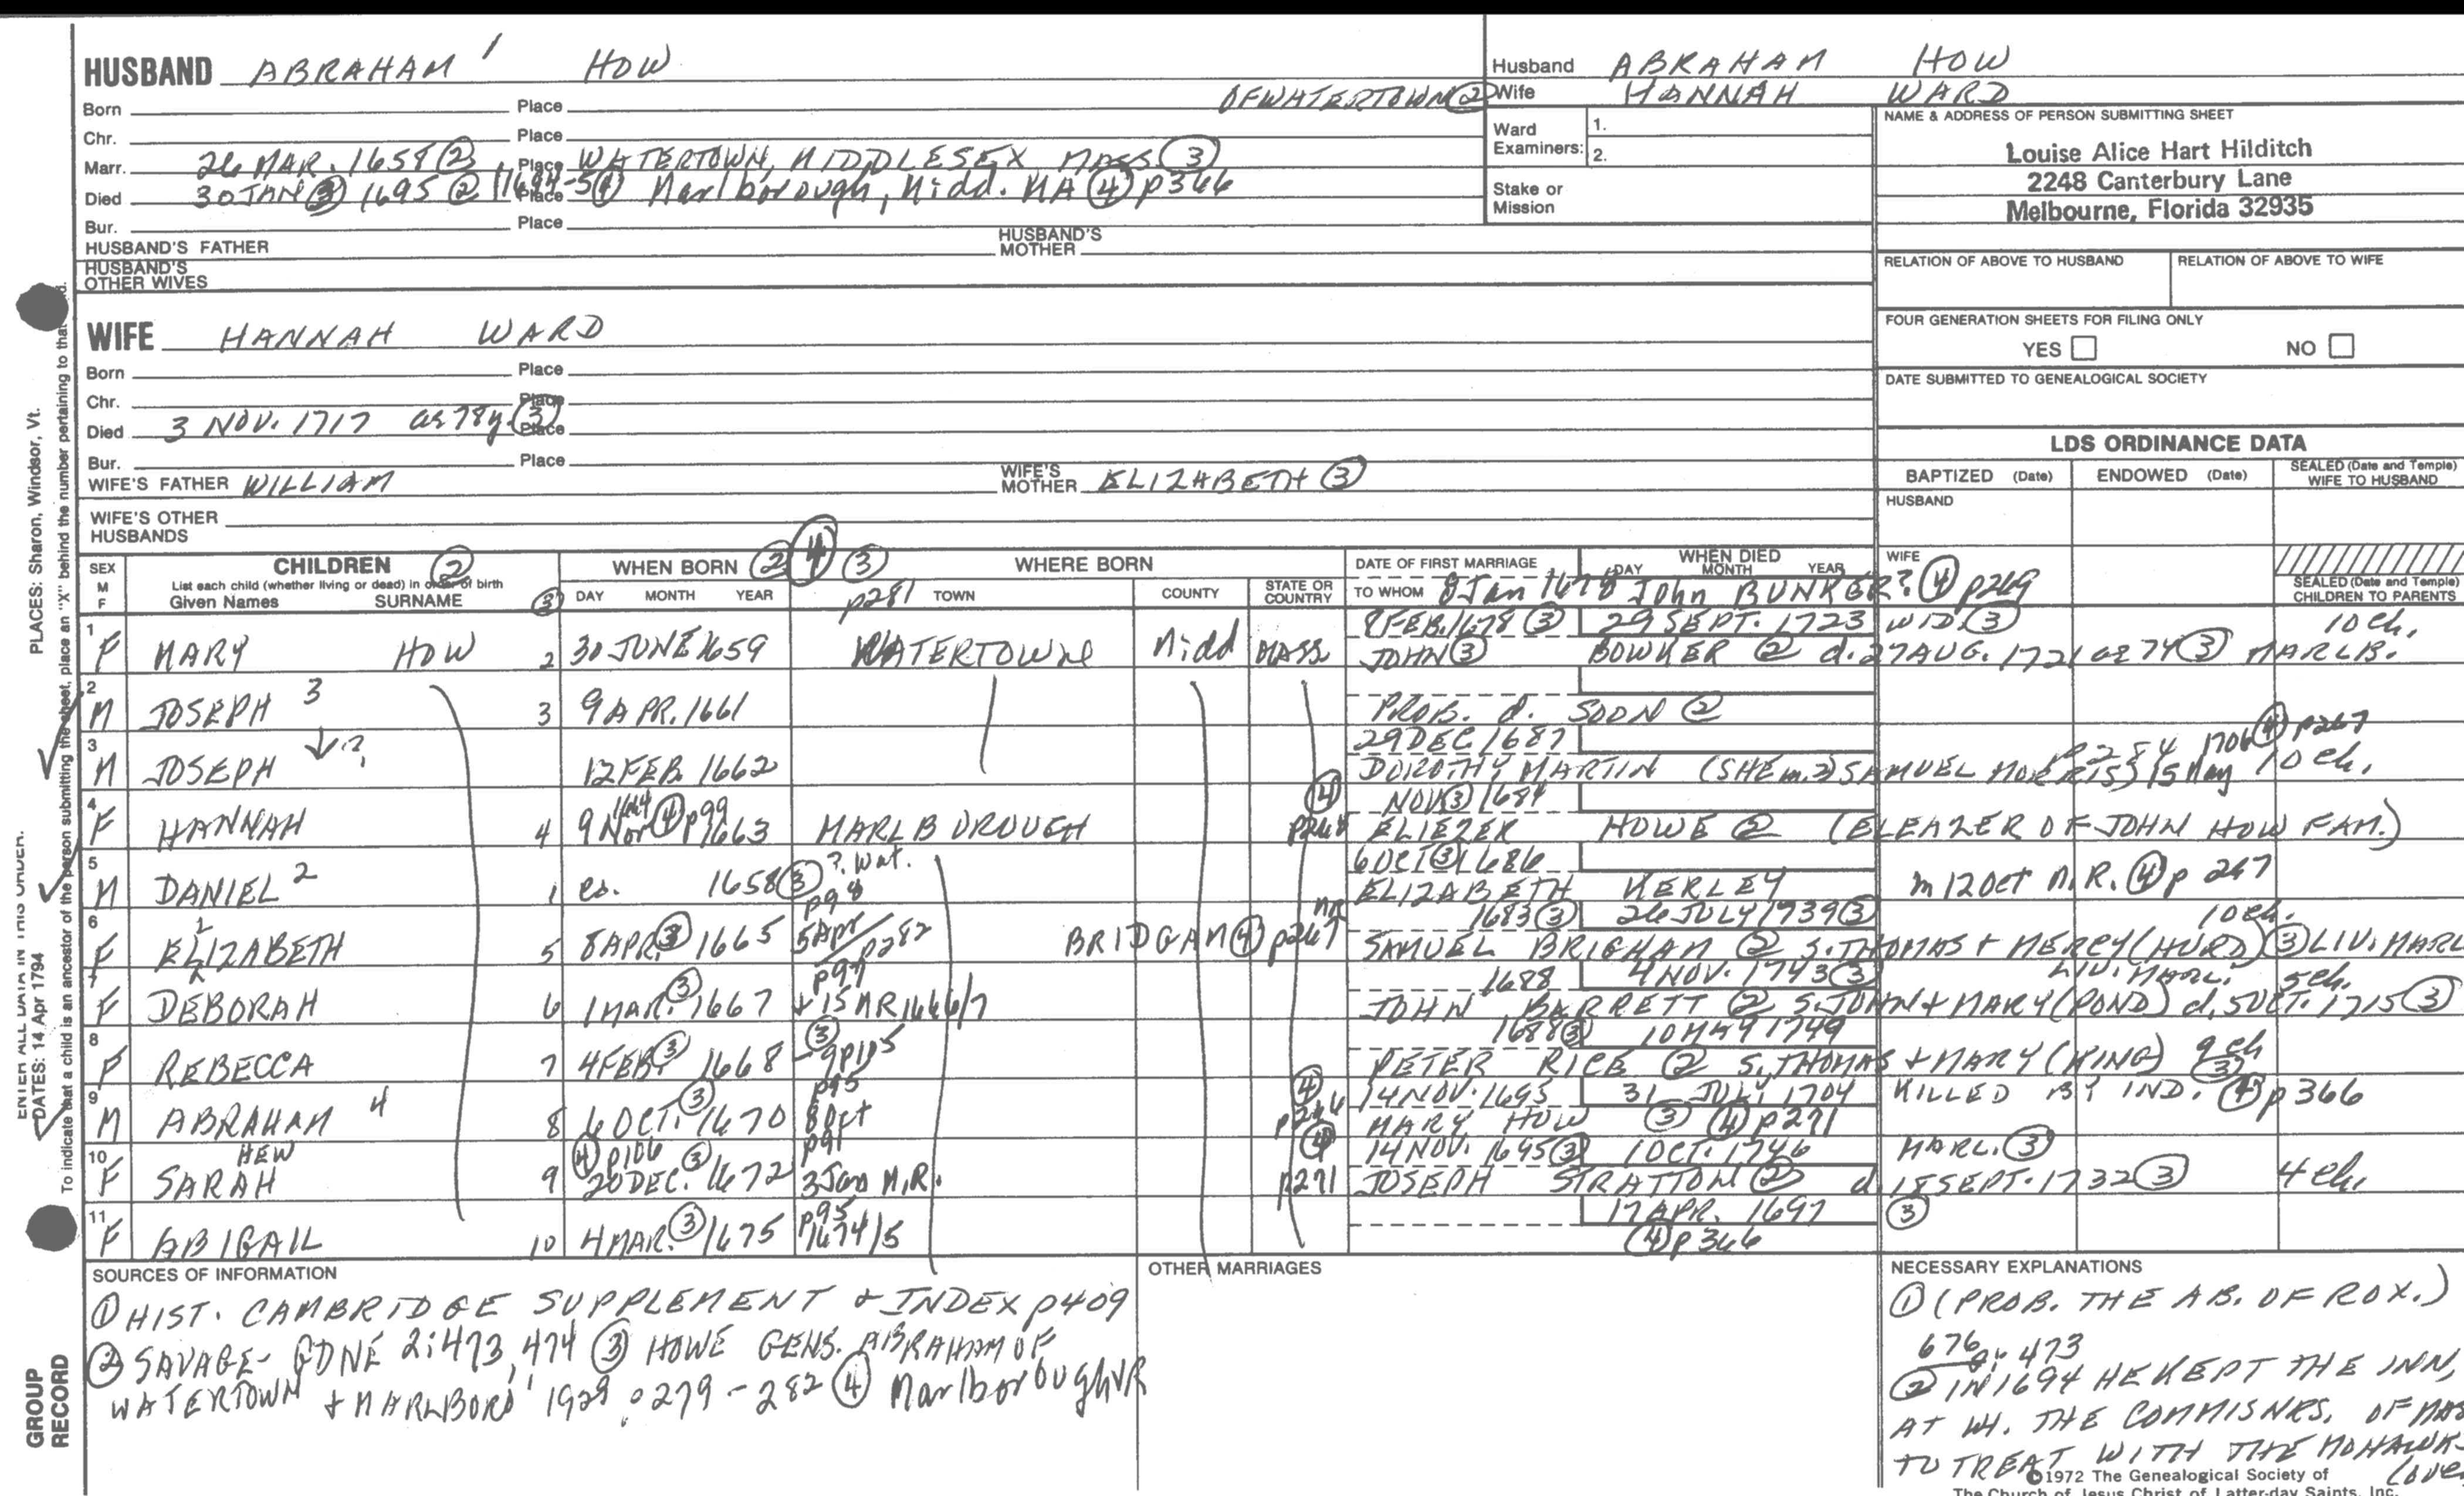 HUSBAND ABRAHAM 1 HOW
Born Place OF WATERTOWN ②
Chr. Place
Marr. 26 MAR. 1658 ② Place WATERTOWN, MIDDLESEX MASS ③
Died 30 JAN ③ 1695 ② 1694-5 ④ Place Marlborough, Midd. MA ④ p366
Bur. Place
HUSBAND'S FATHER HUSBAND'S MOTHER
HUSBAND'S OTHER WIVES
Husband ABRAHAM HOW
Wife HANNAH WARD
Ward Examiners: 1. 2.
Stake or Mission
NAME & ADDRESS OF PERSON SUBMITTING SHEET
Louise Alice Hart Hilditch
2248 Canterbury Lane
Melbourne, Florida 32935
RELATION OF ABOVE TO HUSBAND RELATION OF ABOVE TO WIFE
FOUR GENERATION SHEETS FOR FILING ONLY
YES NO
DATE SUBMITTED TO GENEALOGICAL SOCIETY
WIFE HANNAH WARD
Born Place
Chr. Place
Died 3 NOV. 1717 ae 78y. ③ Place
Bur. Place
WIFE'S FATHER WILLIAM WIFE'S MOTHER ELIZABETH ③
WIFE'S OTHER HUSBANDS
LDS ORDINANCE DATA
BAPTIZED (Date) ENDOWED (Date) SEALED (Date and Temple) WIFE TO HUSBAND
HUSBAND
WIFE
SEALED (Date and Temple) CHILDREN TO PARENTS
SEX M F CHILDREN ② WHEN BORN ② ④ ③ WHERE BORN DATE OF FIRST MARRIAGE WHEN DIED
List each child (whether living or dead) in order of birth
Given Names SURNAME ③ DAY MONTH YEAR p281 TOWN COUNTY STATE OR COUNTRY TO WHOM DAY MONTH YEAR
8 Jan 1678 John BUNKER? ④ p269
8 FEB. 1678 ③ 29 SEPT. 1723 WID. ③ 10 ch.
1 F MARY HOW 2 30 JUNE 1659 WATERTOWN Midd MASS JOHN ③ BOWKER ② d. 27 AUG. 1721 ae 74 ③ MARLB.
2 M JOSEPH 3 3 9 APR. 1661 PROB. d. SOON ②
29 DEC 1687 p284 1706 ④ p267
3 M JOSEPH ↓? 12 FEB. 1662 DOROTHY MARTIN (SHE m. 2) SAMUEL MORRIS) 15 May 10 ch.
④ NOV ③ 1684
4 F HANNAH 4 9 Nov 1664 ④ p99 1663 MARLBOROUGH ELIEZER HOWE ② (ELEAZER OF JOHN HOW FAM.)
6 OCT ③ 1686
5 M DANIEL 2 1 ca. 1658 ③ ? Wat. ELIZABETH KERLEY m 12 Oct M.R. ④ p 267
p98 1683 ③ 26 JULY 1739 ③ 10 ch.
6 F ELIZABETH 5 8 APR. ③ 1665 5 Apr p282 BRIDGAM ④ p267 SAMUEL BRIGHAM ② S. THOMAS + MERCY (HURD) ③ LIV. MARL
p97 1688 4 NOV. 1743 ③ LIV. MARL. 5 ch.
7 F DEBORAH 6 1 MAR. ③ 1667 1 5 MR 1666/7 JOHN BARRETT ② S. JOHN + MARY (POND) d. 5 OCT. 1715 ③
1688 ③ 10 MAY 1749
8 F REBECCA 7 4 FEB. ③ 1668 ③ PETER RICE ② S. THOMAS + MARY (KING) 9 ch ③
p95 ④ 14 NOV. 1695 31 JULY 1704 KILLED BY IND. ④ p366
9 M ABRAHAM 4 8 6 OCT. ③ 1670 8 Oct p266 MARY HOW ③ ④ p271
HEW ④ p106 p91 ④ 14 NOV. 1695 ③ 1 OCT. 1746 MARL. ③
10 F SARAH 9 20 DEC. ③ 1672 3 Jan M.R. p271 JOSEPH STRATTON ② d. 18 SEPT. 1732 ③ 4 ch.
p95 17 APR. 1697 ③
11 F ABIGAIL 10 4 MAR. ③ 1675 1674/5 ④ p366
SOURCES OF INFORMATION
① HIST. CAMBRIDGE SUPPLEMENT & INDEX p409
② SAVAGE- GDNE 2:473, 474 ③ HOWE GENS. ABRAHAM OF
WATERTOWN + MARLBORO 1929 p279-282 ④ Marlborough VR
OTHER MARRIAGES
NECESSARY EXPLANATIONS
① (PROB. THE AB. OF ROX.)
② IN 1694 HE KEPT THE INN,
AT WH. THE COMMISNRS. OF MAS
TO TREAT WITH THE MOHAWK
©1972 The Genealogical Society of
The Church of Jesus Christ of Latter-day Saints, Inc.
PLACES: Sharon, Windsor, Vt.
ENTER ALL DATA IN THIS ORDER:
DATES: 14 Apr 1794
To indicate that a child is an ancestor of the person submitting the sheet, place an "X" behind the number pertaining to that
GROUP RECORD